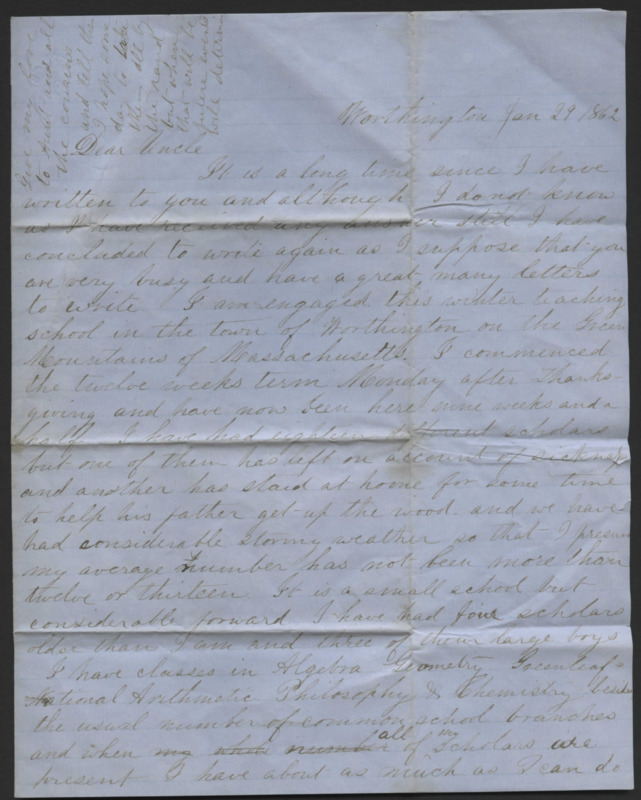 Worthington Jan 29 1862
Dear Uncle
It is a long time since I have
written to you and although I do not know
as I have received any answer still I have
concluded to write again as I suppose that you
are very busy and have a great many letters
to write I am engaged this winter teaching
school in the town of Worthington on the Green
Mountains of Massachusetts. I commenced
the twelve weeks term Monday after Thanks-
giving and have now been here nine weeks and a
half I have had eighteen different scholars
but one of them has left on account of sickness
and another has staid at home for some time
to help his father get up the wood and we have
had considerable stormy weather so that I presume
my average number has not been more than
twelve or thirteen. It is a small school but
considerable forward I have had four scholars
older than I am and three of them large boys
I have classes in Algebra Geometry Greenleaf's
National Arithmetic Philosophy & Chemistry beside
the usual number of common school branches
and when my whole number all of my scholars are
present I have about as much as I can do
Give my love
to Aunt and all
the cousins
and tell them
I hope some
day to take
them all by
the hand
but when
that will be
future events
will determine